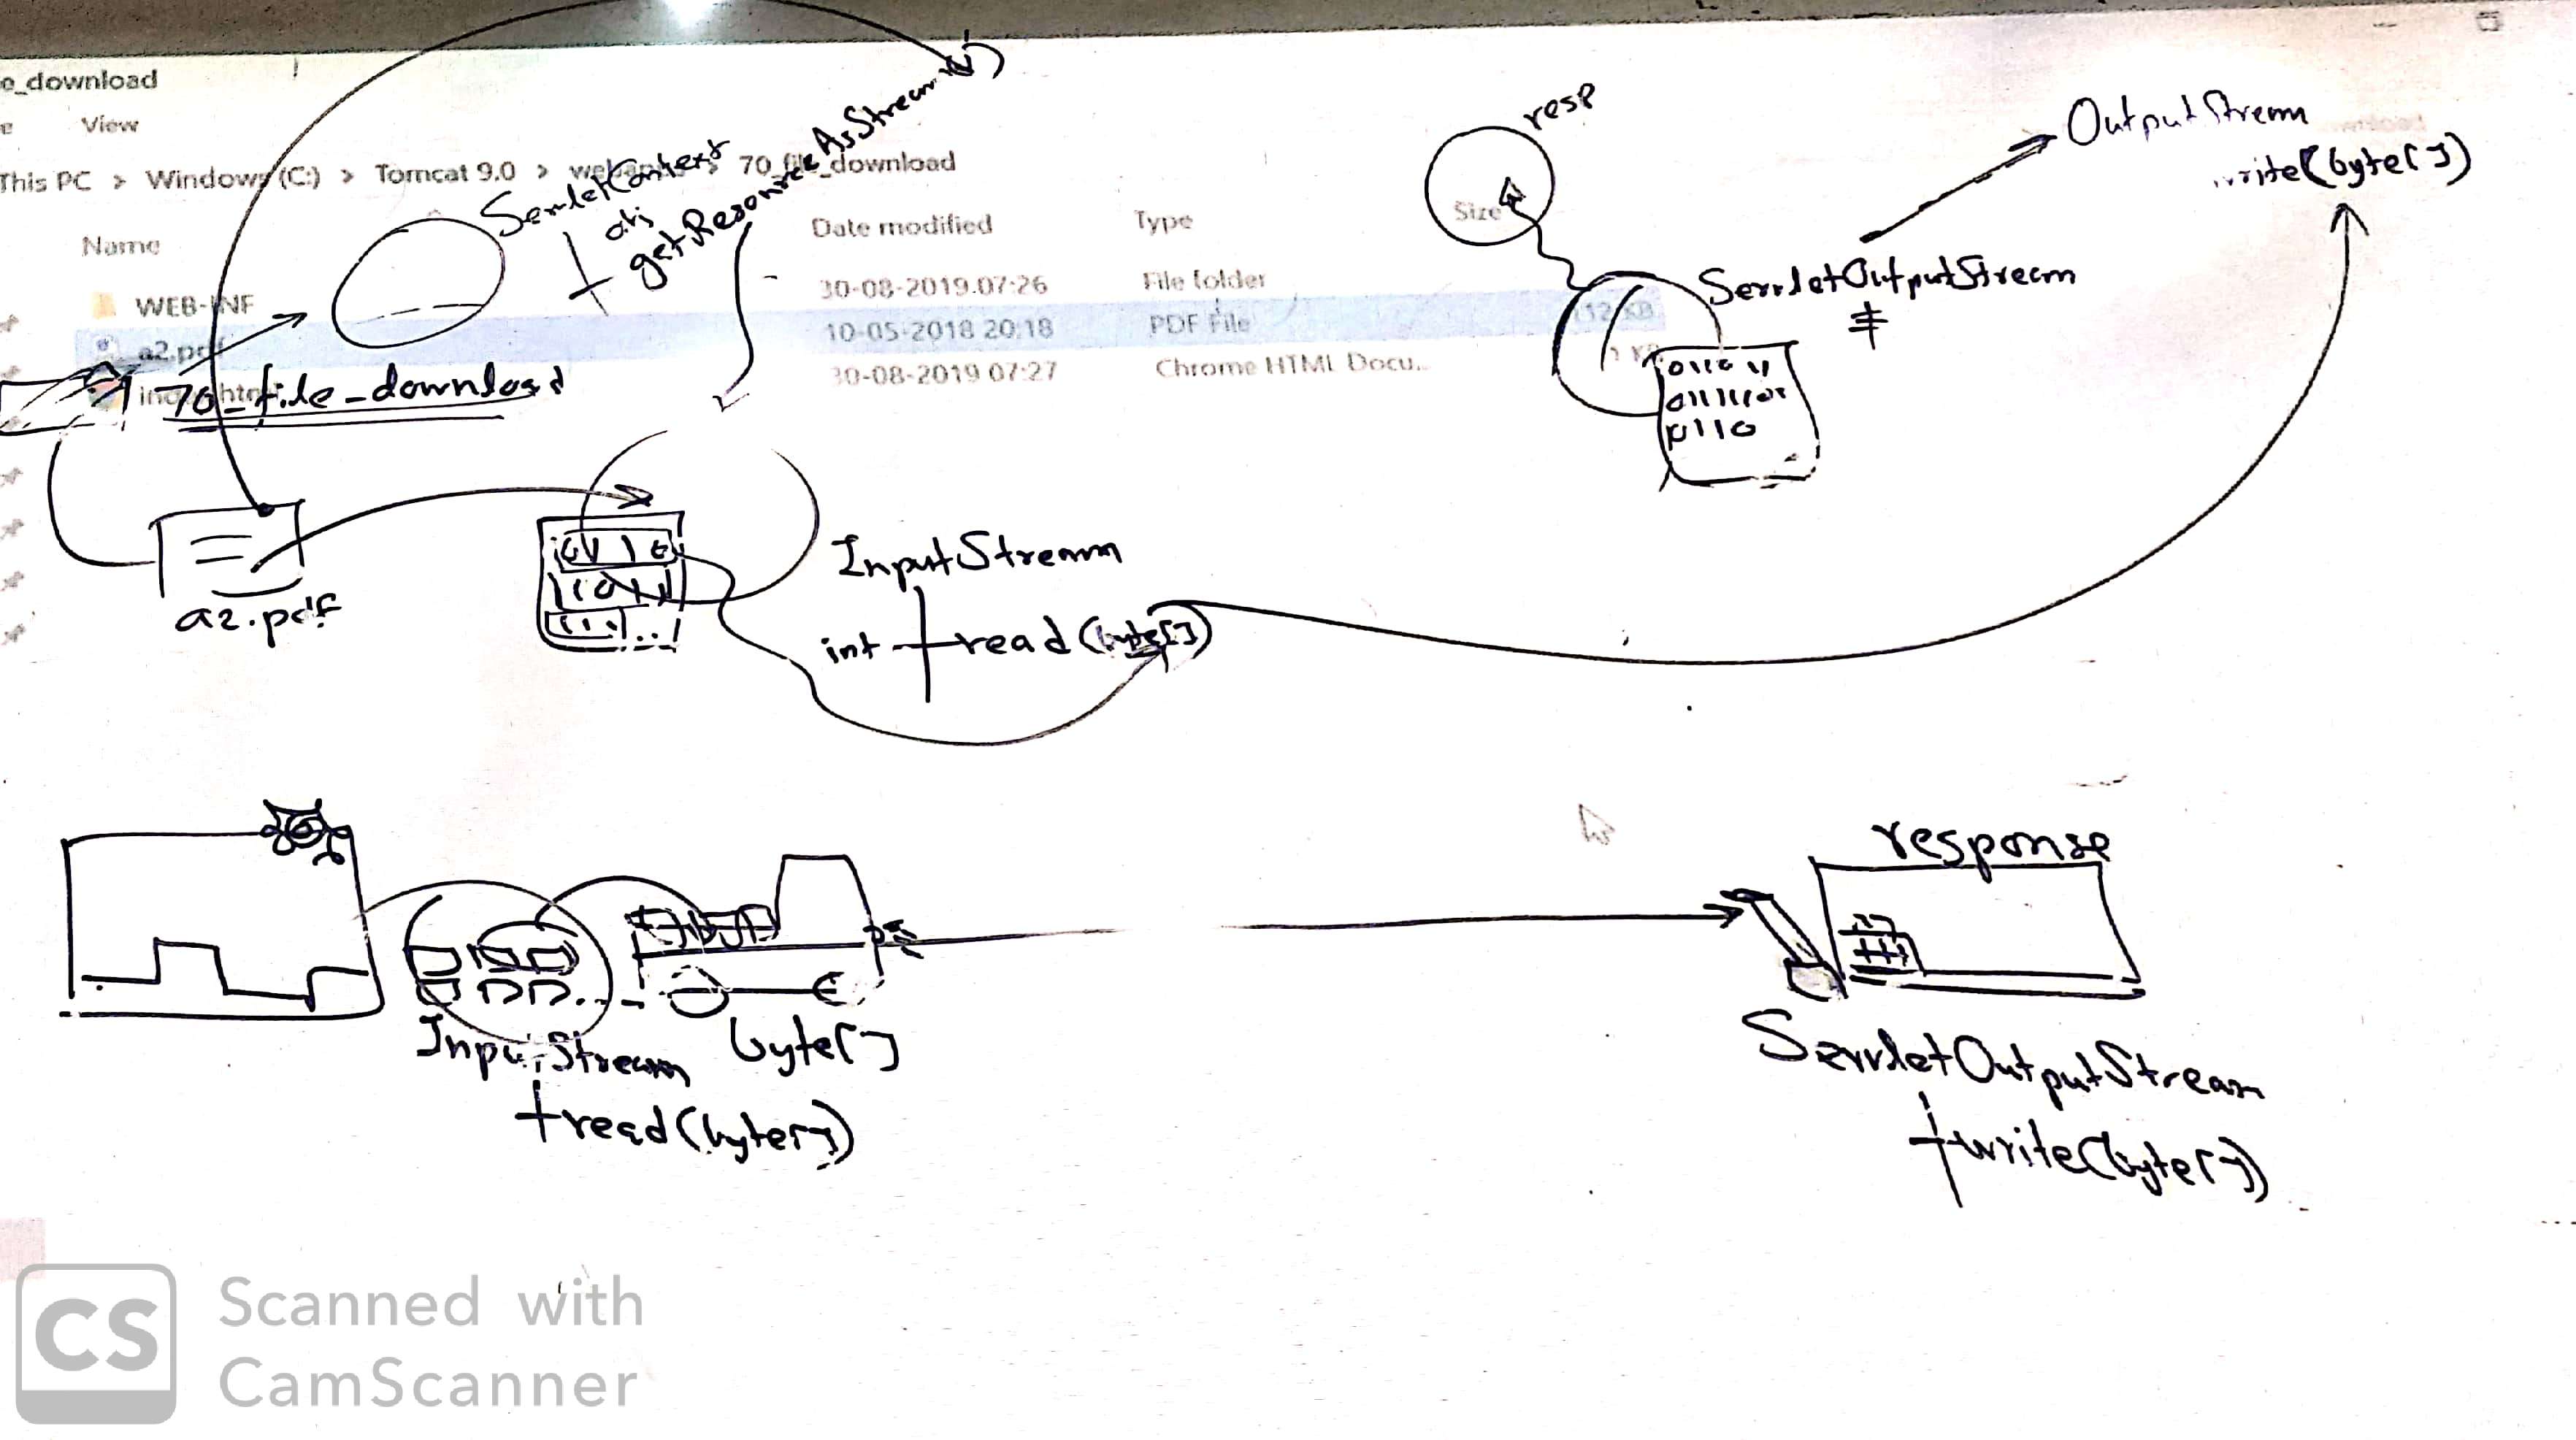 e_download
View
This PC > Windows (C:) > Tomcat 9.0 > 70_file_download
Name
Date modified
Type
Size
WEB-INF
30-08-2019 07:26
File folder
a2.pdf
10-05-2018 20:18
PDF File
112 KB
30-08-2019 07:27
Chrome HTML Docu...
ServletContext
obj
getResourceAsStream( )
70_file_download
a2.pdf
InputStream
int read(byte[])
resp
ServletOutputStream
OutputStream
write(byte[])
InputStream
read(byte[])
byte[]
response
ServletOutputStream
write(byte[])
CS
Scanned with
CamScanner